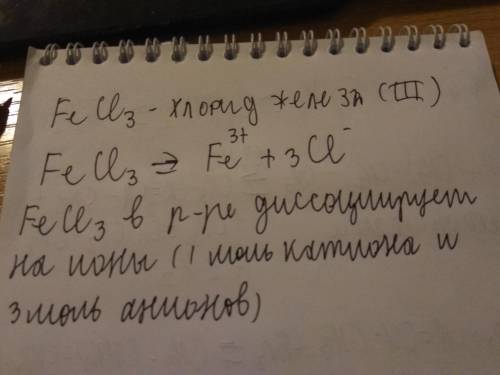 FeCl₃ - хлорид железа (III)
FeCl₃ ⇒ Fe³⁺ + 3Cl⁻
FeCl₃ в р-ре диссоциирует
на ионы (1 моль катиона и
3 моль анионов)